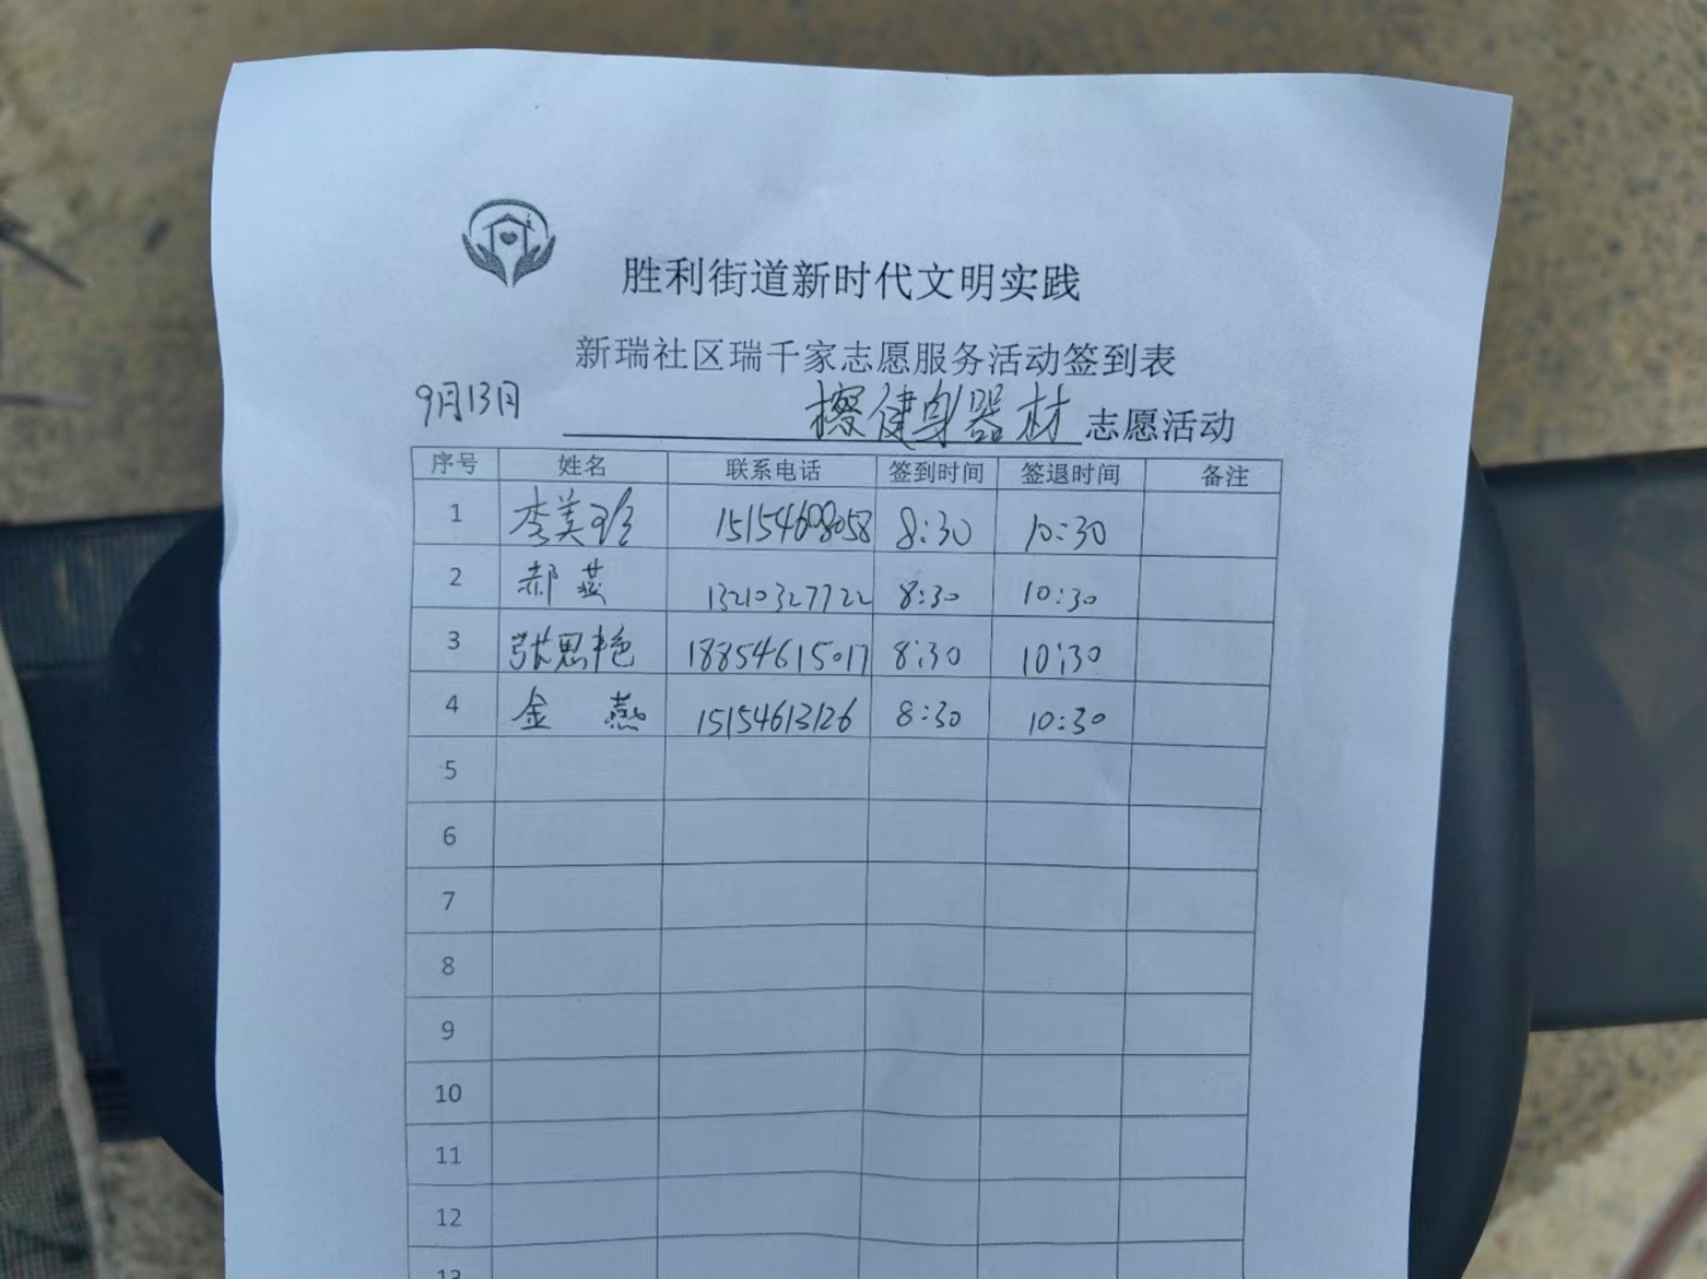 胜利街道新时代文明实践
新瑞社区瑞千家志愿服务活动签到表
9月13日 擦健身器材 志愿活动
序号 姓名 联系电话 签到时间 签退时间 备注
1 李美玲 15154608058 8:30 10:30
2 郝燕 13210327722 8:30 10:30
3 张思艳 18854615017 8:30 10:30
4 金燕 15154613126 8:30 10:30
5
6
7
8
9
10
11
12
13